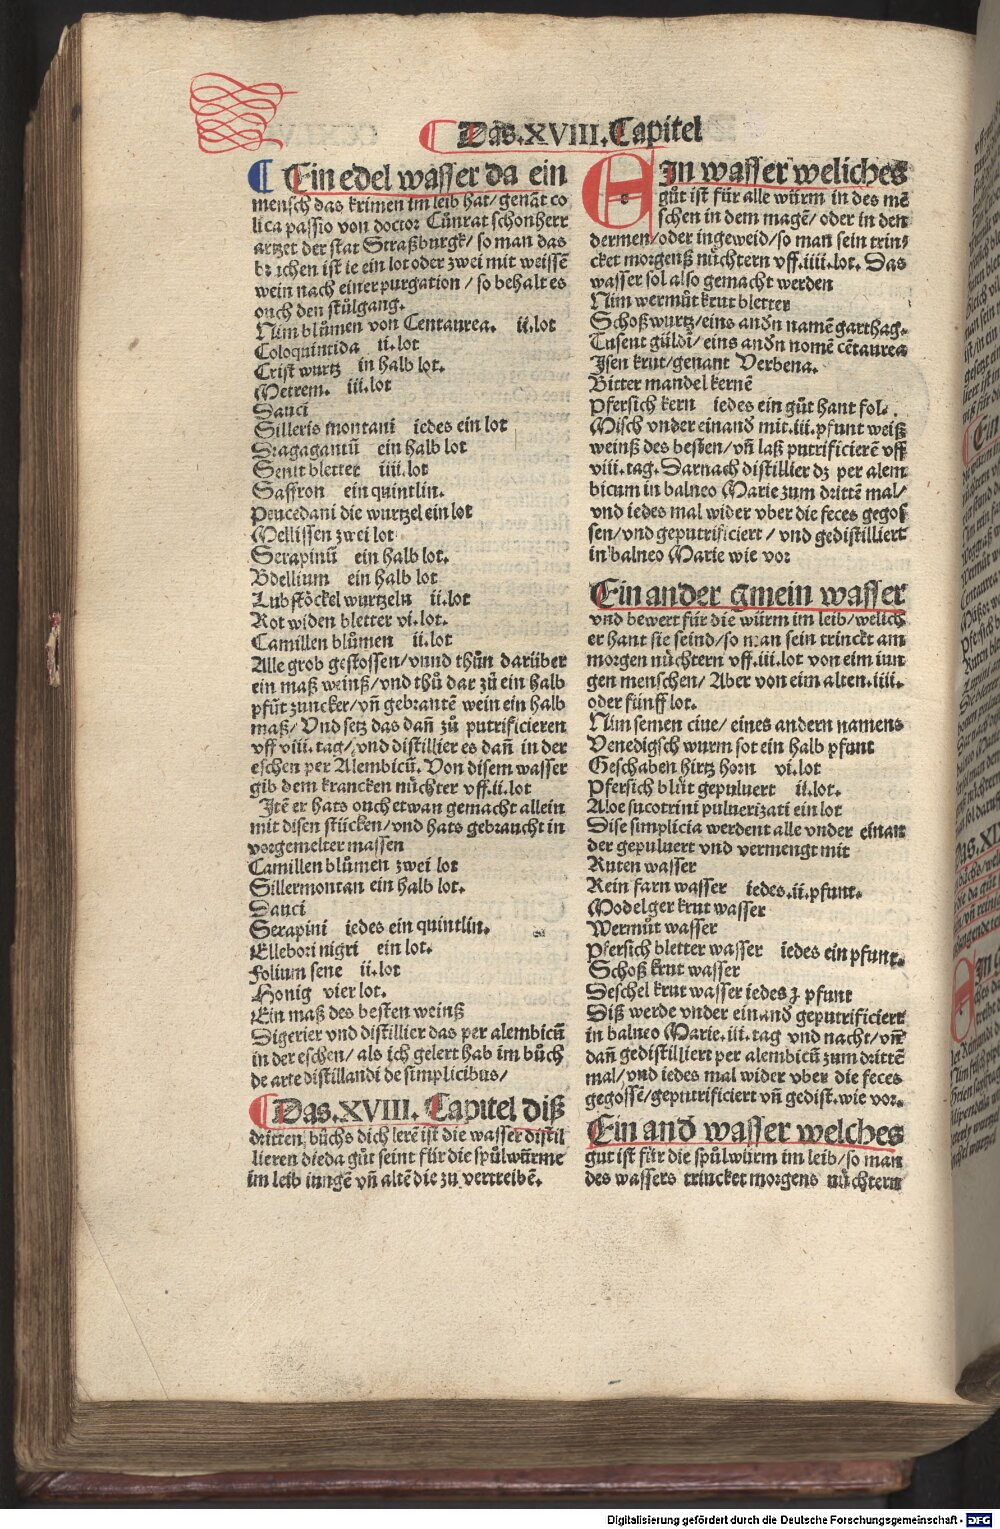 Das.XVIII.Capitel
Ein edel wasser da ein
mensch das krimen im leib hat/genāt co
lica passio von doctor Cůnrat schonherr
artzet der stat Straßburgk/ so man das
bruchen ist ie ein lot oder zwei mit weissē
wein nach einer purgation/ so behalt es
ouch den stůlgang.
Nim blůmen von Centaurea. ii.lot
Coloquintida ii.lot
Crist wurtz in halb lot.
Metrem. iii.lot
Dauci
Silleris montani iedes ein lot
Dragagantū ein halb lot
Senit bletter iiii.lot
Saffron ein quintlin.
Peucedani die wurtzel ein lot
Mellissen zwei lot
Serapinū ein halb lot.
Bdellium ein halb lot
Lubstöckel wurtzeln ii.lot
Rot widen bletter vi.lot.
Camillen blůmen ii.lot
Alle grob gestossen/vnnd thůn darüber
ein maß weinß/vnd thů dar zů ein halb
pfūt zuncker/vñ gebrantē wein ein halb
maß/ Vnd setz das dañ zů putrificieren
vff viii.tag/vnd distillier es dañ in der
eschen per Alembicū. Von disem wasser
gib dem krancken nüchter vff.ii.lot
Itē er hats ouch etwan gemacht allein
mit disen stücken/vnd hats gebraucht in
vorgemelter massen
Camillen blůmen zwei lot
Sillermontan ein halb lot.
Dauci
Serapini iedes ein quintlin.
Ellebori nigri ein lot.
Folium sene ii.lot
Honig vier lot.
Ein maß des besten weinß
Digerier vnd distillier das per alembicū
in der eschen/ als ich gelert hab im bůch
de arte distillandi de simplicibus/
Das.XVIII. Capitel diß
dritten bůchs dich lerē ist die wasser distil
lieren die da gůt seint für die spůlwürme
im leib iungē vñ altē die zu vertreibē.
EIn wasser weliches
gůt ist für alle würm in des mē
schen in dem magē/ oder in den
dermen/oder ingeweid/so man sein trin/
cket morgenß nüchtern vff.iiii.lot. Das
wasser sol also gemacht werden
Nim wermůt krut bletter
Schoß wurtz/eins andn namē garthag.
Tusent güldī/ eins andn nomē cētaurea
Isen krut/genant Verbena.
Bitter mandel kernē
Pfersich kern iedes ein gůt hant fol.
Misch vnder einand mit.iii.pfunt weiß
weinß des besten/vñ laß putrificierē vff
viii.tag. Darnach distillier dz per alem
bicum in balneo Marie zum drittē mal/
vnd iedes mal wider vber die feces gegos
sen/vnd geputrificiert/ vnd gedistilliert
in balneo Marie wie vor
Ein ander gmein wasser
vnd bewert für die würm im leib/welich
er hant sie seind/so man sein trinckt am
morgen nüchtern vff.iii.lot von eim iun
gen menschen/ Aber von eim alten.iiii.
oder fünff lot.
Nim semen cine/ eines andern namens
Venedigsch wurm sot ein halb pfunt
Geschaben hirtz horn vi.lot
Pfersich blüt gepuluert ii.lot.
Aloe sucotrini puluerizati ein lot
Dise simplicia werdent alle vnder einan
der gepuluert vnd vermengt mit
Ruten wasser
Rein farn wasser iedes.ii.pfunt.
Modelger krut wasser
Wermůt wasser
Pfersich bletter wasser iedes ein pfunt.
Schoß krut wasser
Deschel krut wasser iedes ʒ pfunt
Diß werde vnder einand geputrificiert
in balneo Marie.iii.tag vnd nacht/vñ
dañ gedistilliert per alembicū zum drittē
mal/vnd iedes mal wider vber die feces
gegossē/geputrificiert vñ gedist.wie vor.
Ein and wasser welches
gut ist für die spůlwürm im leib/so man
des wassers trincket morgens nüchtern
Digitalisierung gefördert durch die Deutsche Forschungsgemeinschaft - DFG